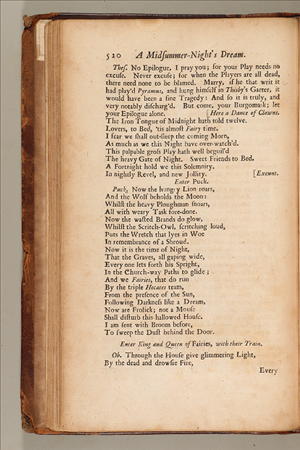 520 A Midsummer-Night's Dream.
Thes. No Epilogue, I pray you; for your Play needs no
excuse. Never excuse; for when the Players are all dead,
there need none to be blamed. Marry, if he that writ it
had play'd Pyramus, and hung himself in Thisby's Garter, it
would have been a fine Tragedy: And so it is truly, and
very notably discharg'd. But come, your Burgomask; let
your Epilogue alone. [Here a Dance of Clowns.
The Iron Tongue of Midnight hath told twelve.
Lovers, to Bed, 'tis almost Fairy time.
I fear we shall out-sleep the coming Morn,
As much as we this Night have over-watch'd.
This palpable gross Play hath well beguil'd
The heavy Gate of Night. Sweet Friends to Bed.
A Fortnight hold we this Solemnity.
In nightly Revel, and new Jollity. [Exeunt.
Enter Puck.
Puck. Now the hungry Lion roars,
And the Wolf beholds the Moon:
Whilst the heavy Ploughman snoars,
All with weary Task fore-done.
Now the wasted Brands do glow,
Whilst the Scritch-Owl, scritching loud,
Puts the Wretch that lyes in Woe
In remembrance of a Shroud.
Now it is the time of Night,
That the Graves, all gaping wide,
Every one lets forth his Spright,
In the Church-way Paths to glide;
And we Fairies, that do run
By the triple Hecates team,
From the presence of the Sun,
Following Darkness like a Dream,
Now are Frolick; not a Mouse
Shall disturb this hallowed House.
I am sent with Broom before,
To sweep the Dust behind the Door.
Enter King and Queen of Fairies, with their Train.
Ob. Through the House give glimmering Light,
By the dead and drowsie Fire,
Every